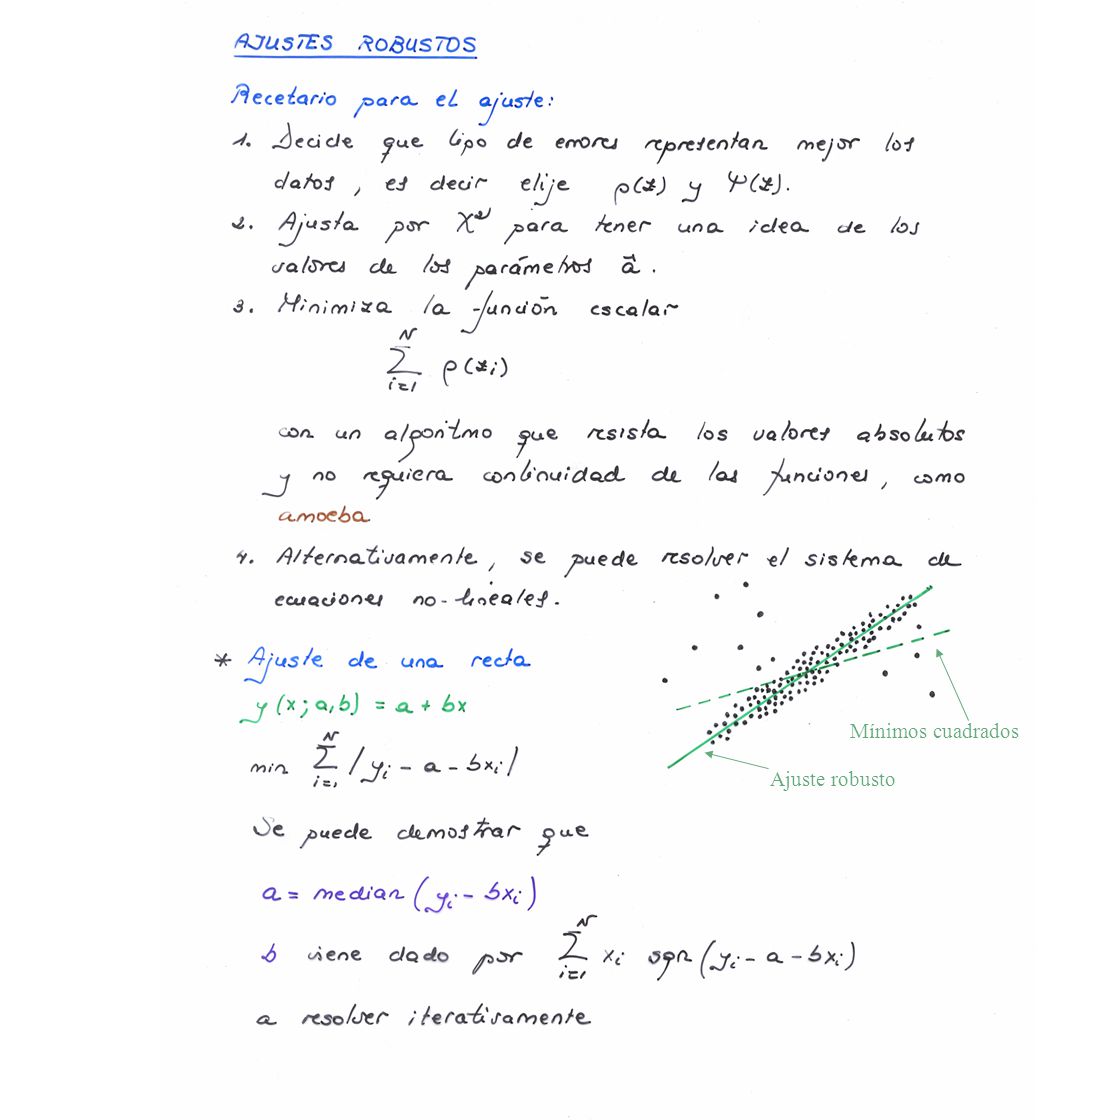 AJUSTES ROBUSTOS
Recetario para el ajuste:
1. Decide que tipo de errores representan mejor los
datos, es decir elije ρ(z) y Ψ(z).
2. Ajusta por χ² para tener una idea de los
valores de los parámetros a⃗.
3. Minimiza la función escalar
∑_{i=1}^{N} ρ(z_i)
con un algoritmo que resista los valores absolutos
y no requiera continuidad de las funciones, como
amoeba
4. Alternativamente, se puede resolver el sistema de
ecuaciones no-lineales.
* Ajuste de una recta
y(x; a,b) = a + bx
min ∑_{i=1}^{N} |y_i - a - bx_i|
Mínimos cuadrados
Ajuste robusto
Se puede demostrar que
a = median(y_i - bx_i)
b viene dado por ∑_{i=1}^{N} x_i sgn(y_i - a - bx_i)
a resolver iterativamente